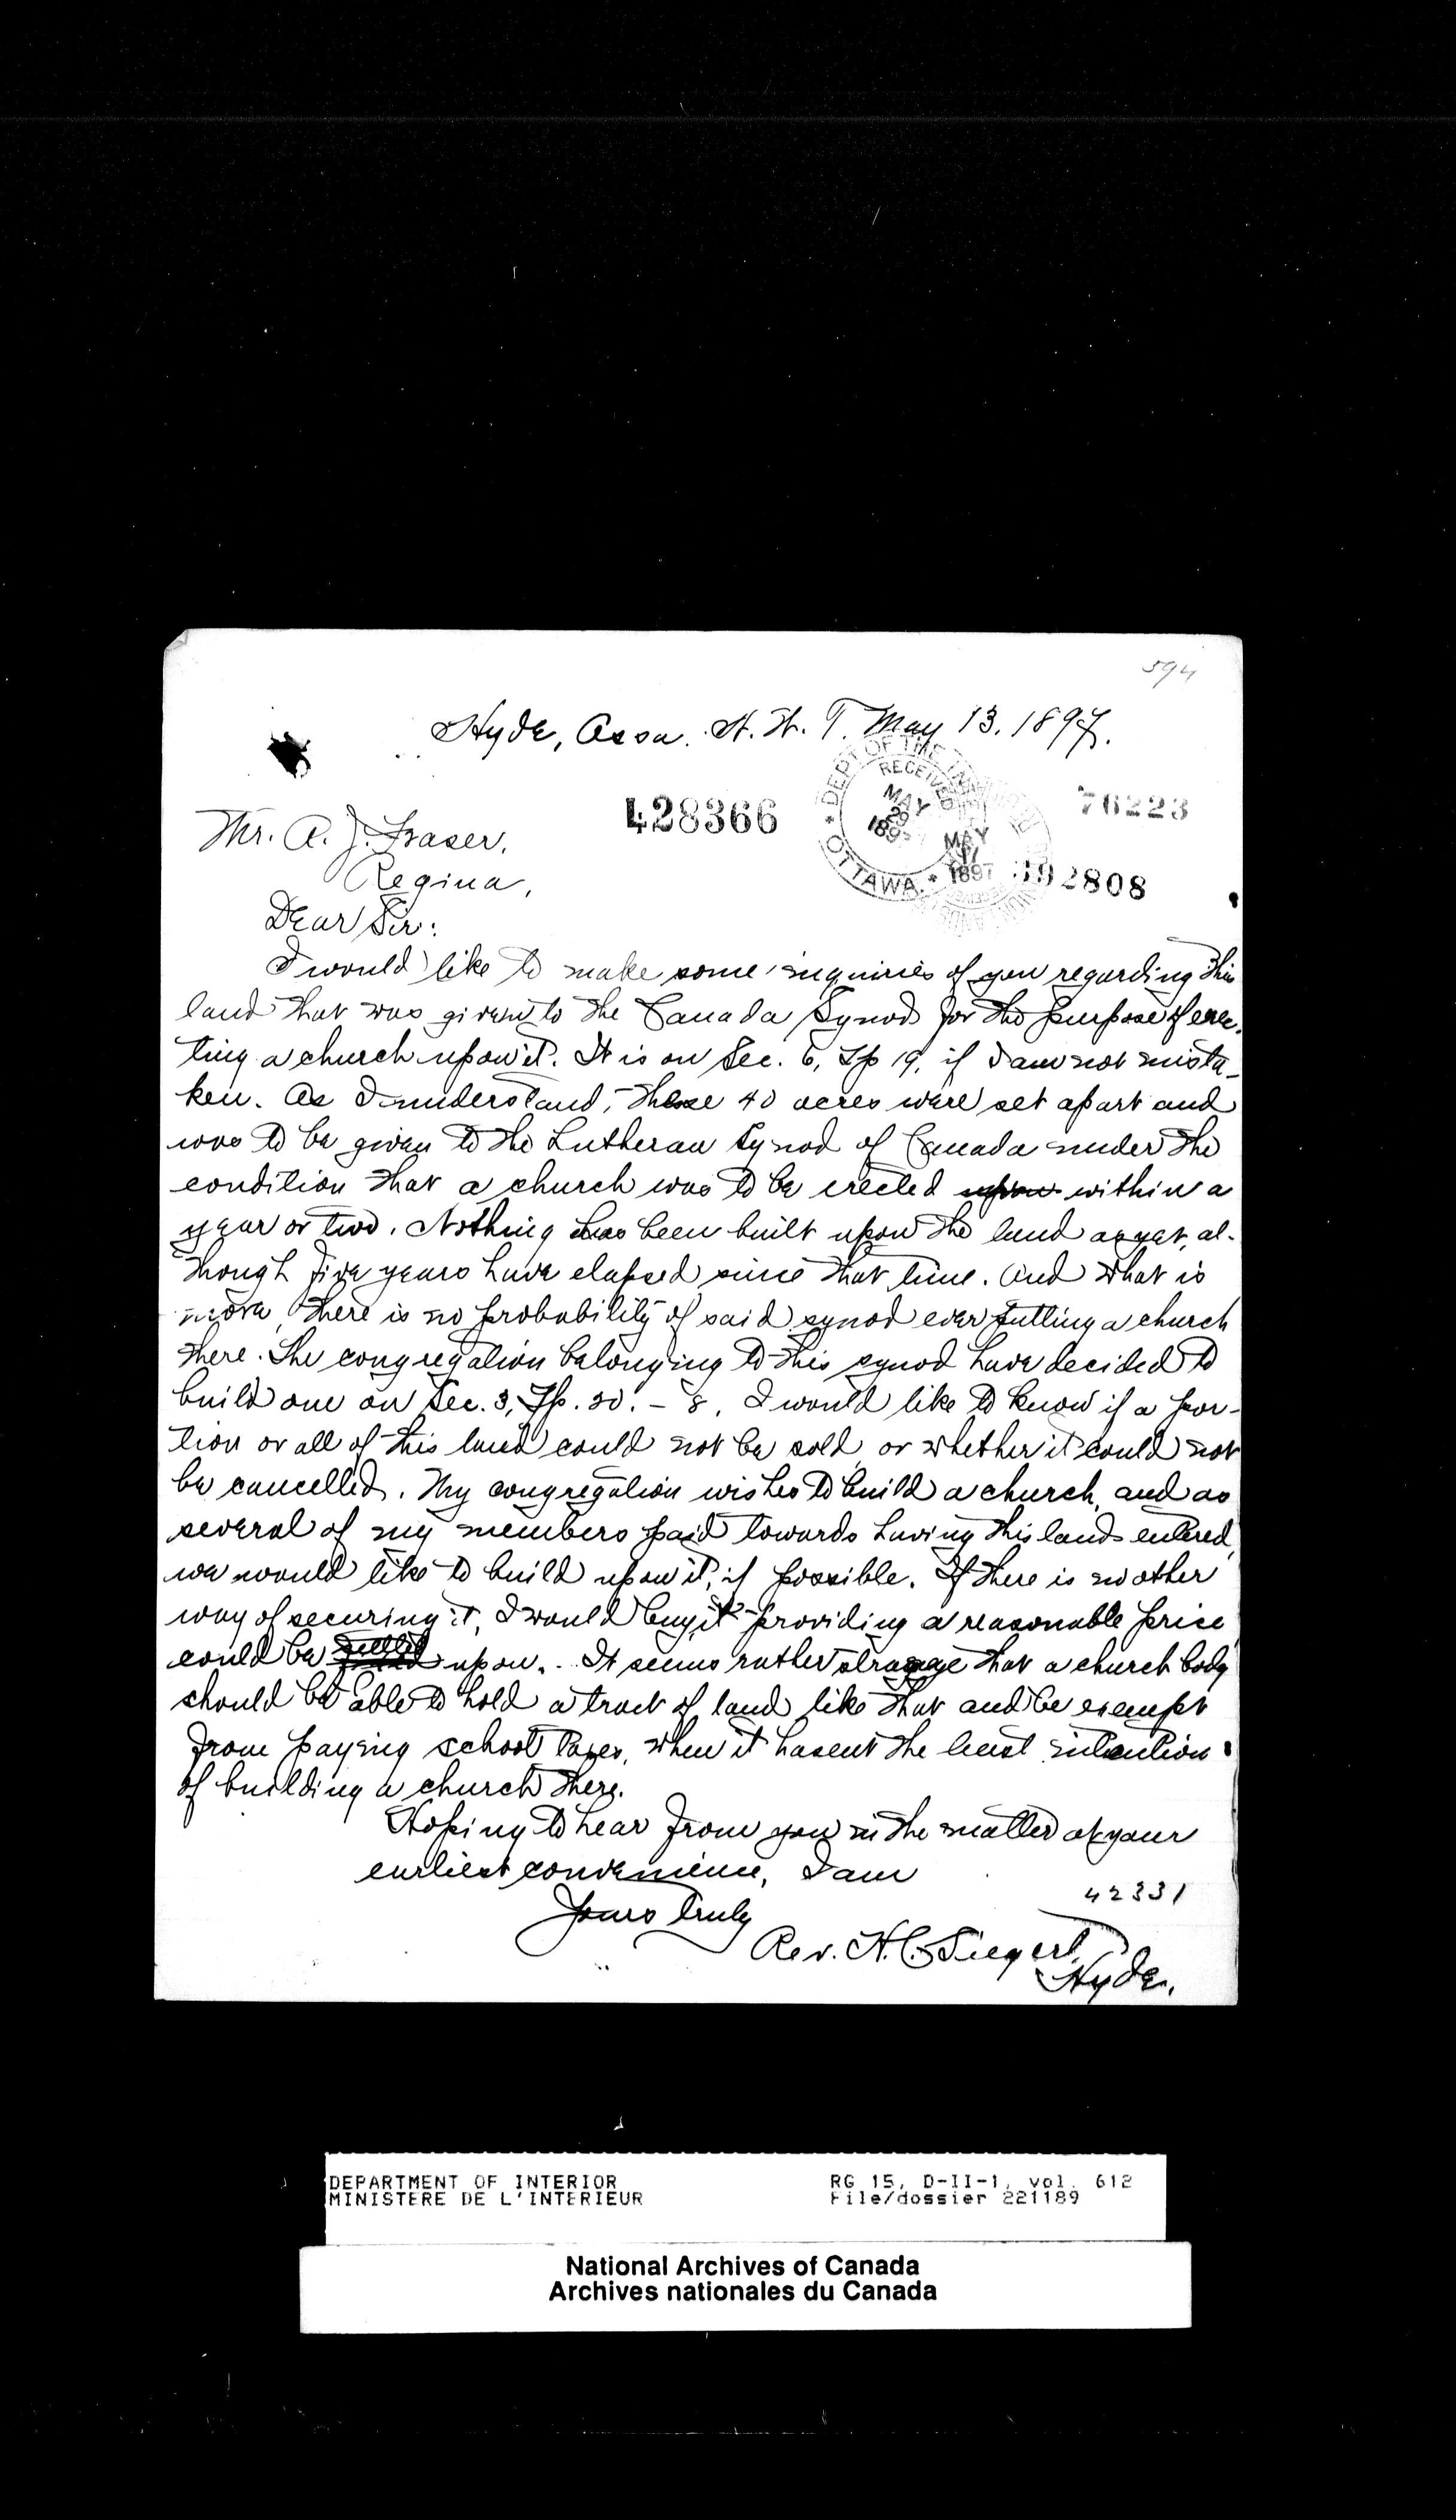 594
Hyde, Assa. N. W. T. May 13. 1897.
428366
DEPT OF THE
RECEIVED
MAY
MAY
1897
OTTAWA
76223
192808
Mr. A. J. Fraser,
Regina,
Dear Sir:
I would like to make some inquiries of you regarding this
land that was given to the Canada Synod for the purpose of erec-
ting a church upon it. It is on Sec. 6, Tp 19, if I am not mista-
ken. As I understand, these 40 acres were set apart and
was to be given to the Lutheran Synod of Canada under the
condition that a church was to be erected upon within a
year or two. Nothing has been built upon the land as yet, al-
though five years have elapsed since that time. And what is
more, there is no probability of said synod ever putting a church
there. The congregation belonging to this synod have decided to
build one on Sec. 3, Tp. 20. - 8. I would like to know if a por-
tion or all of this land could not be sold, or whether it could not
be cancelled. My congregation wishes to build a church, and as
several of my members paid towards having this land entered,
we would like to build upon it, if possible. If there is no other
way of securing it, I would buy it providing a reasonable price
could be settled upon. It seems rather strange that a church body
should be able to hold a tract of land like that and be exempt
from paying school taxes, when it hasent the least intention
of building a church there.
Hoping to hear from you in the matter at your
earliest convenience, I am
42331
Yours truly
Rev. H. C. Siegert,
Hyde.
DEPARTMENT OF INTERIOR
MINISTERE DE L'INTERIEUR
RG 15, D-II-1, vol. 612
File/dossier 221189
National Archives of Canada
Archives nationales du Canada